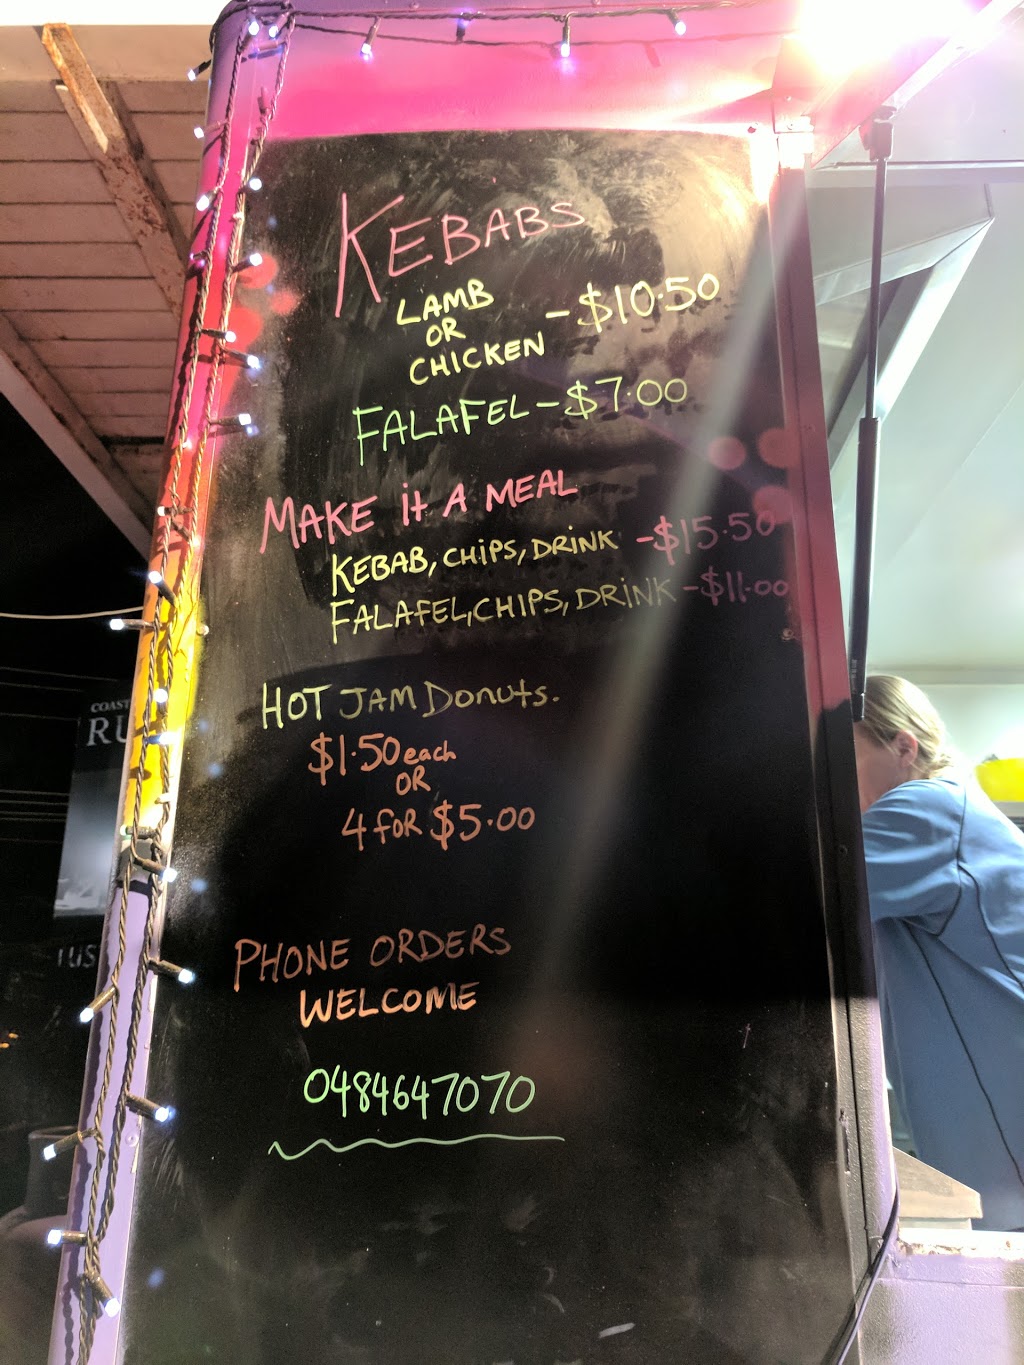 KEBABS
LAMB
OR
CHICKEN - $10.50
FALAFEL - $7.00
MAKE it A MEAL
KEBAB, CHIPS, DRINK - $15.50
FALAFEL, CHIPS, DRINK - $11.00
HOT JAM DONUTS.
$1.50 each
OR
4 FOR $5.00
PHONE ORDERS
WELCOME
0484647070
COAST